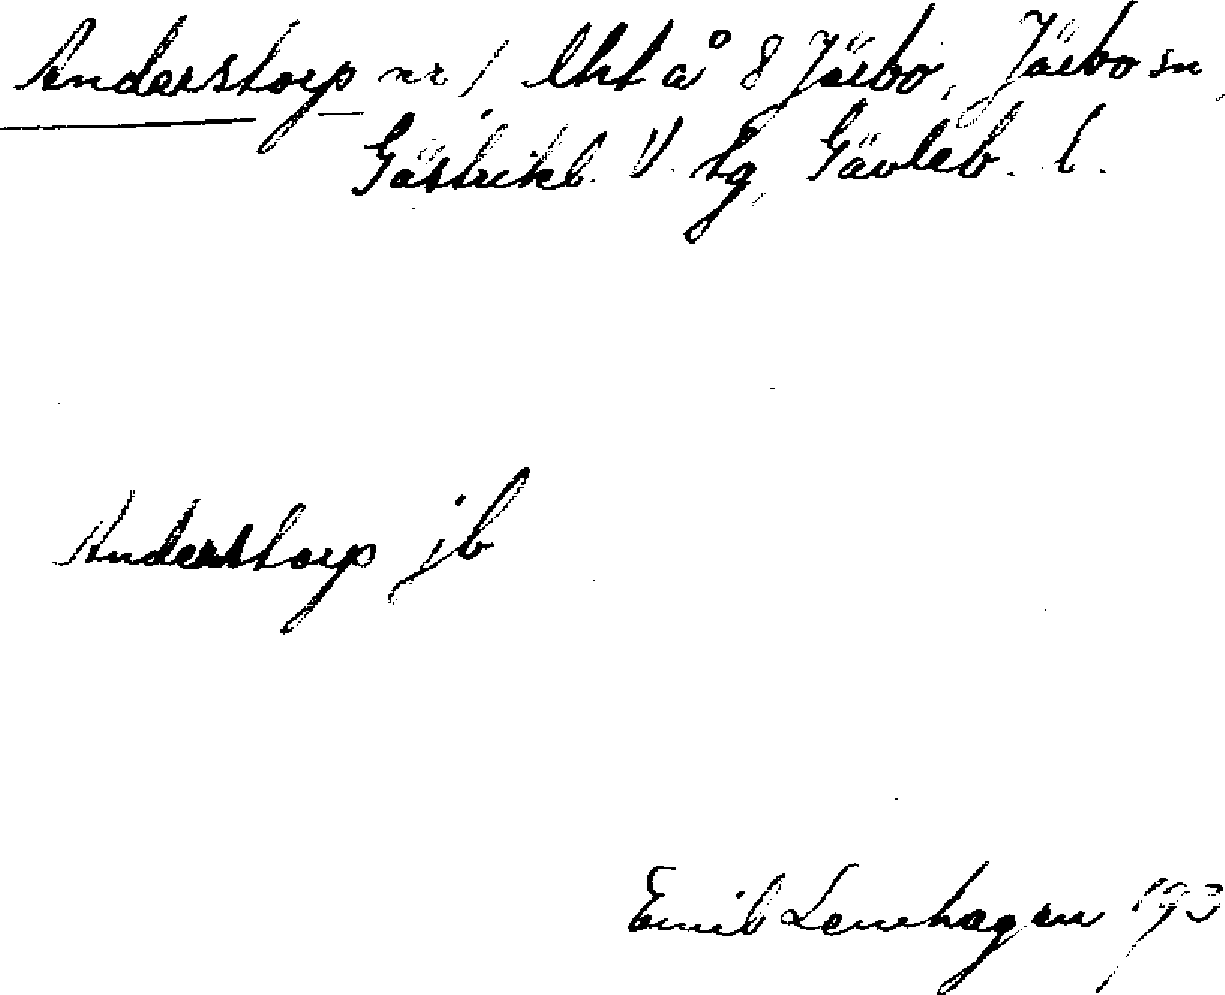 Anderstorp nr 1 lht å 8 Järbo, Järbo sn,
Gästrikl. V. tg, Gävleb. l.
Anderstorp jb
Emil Lenhagen 193